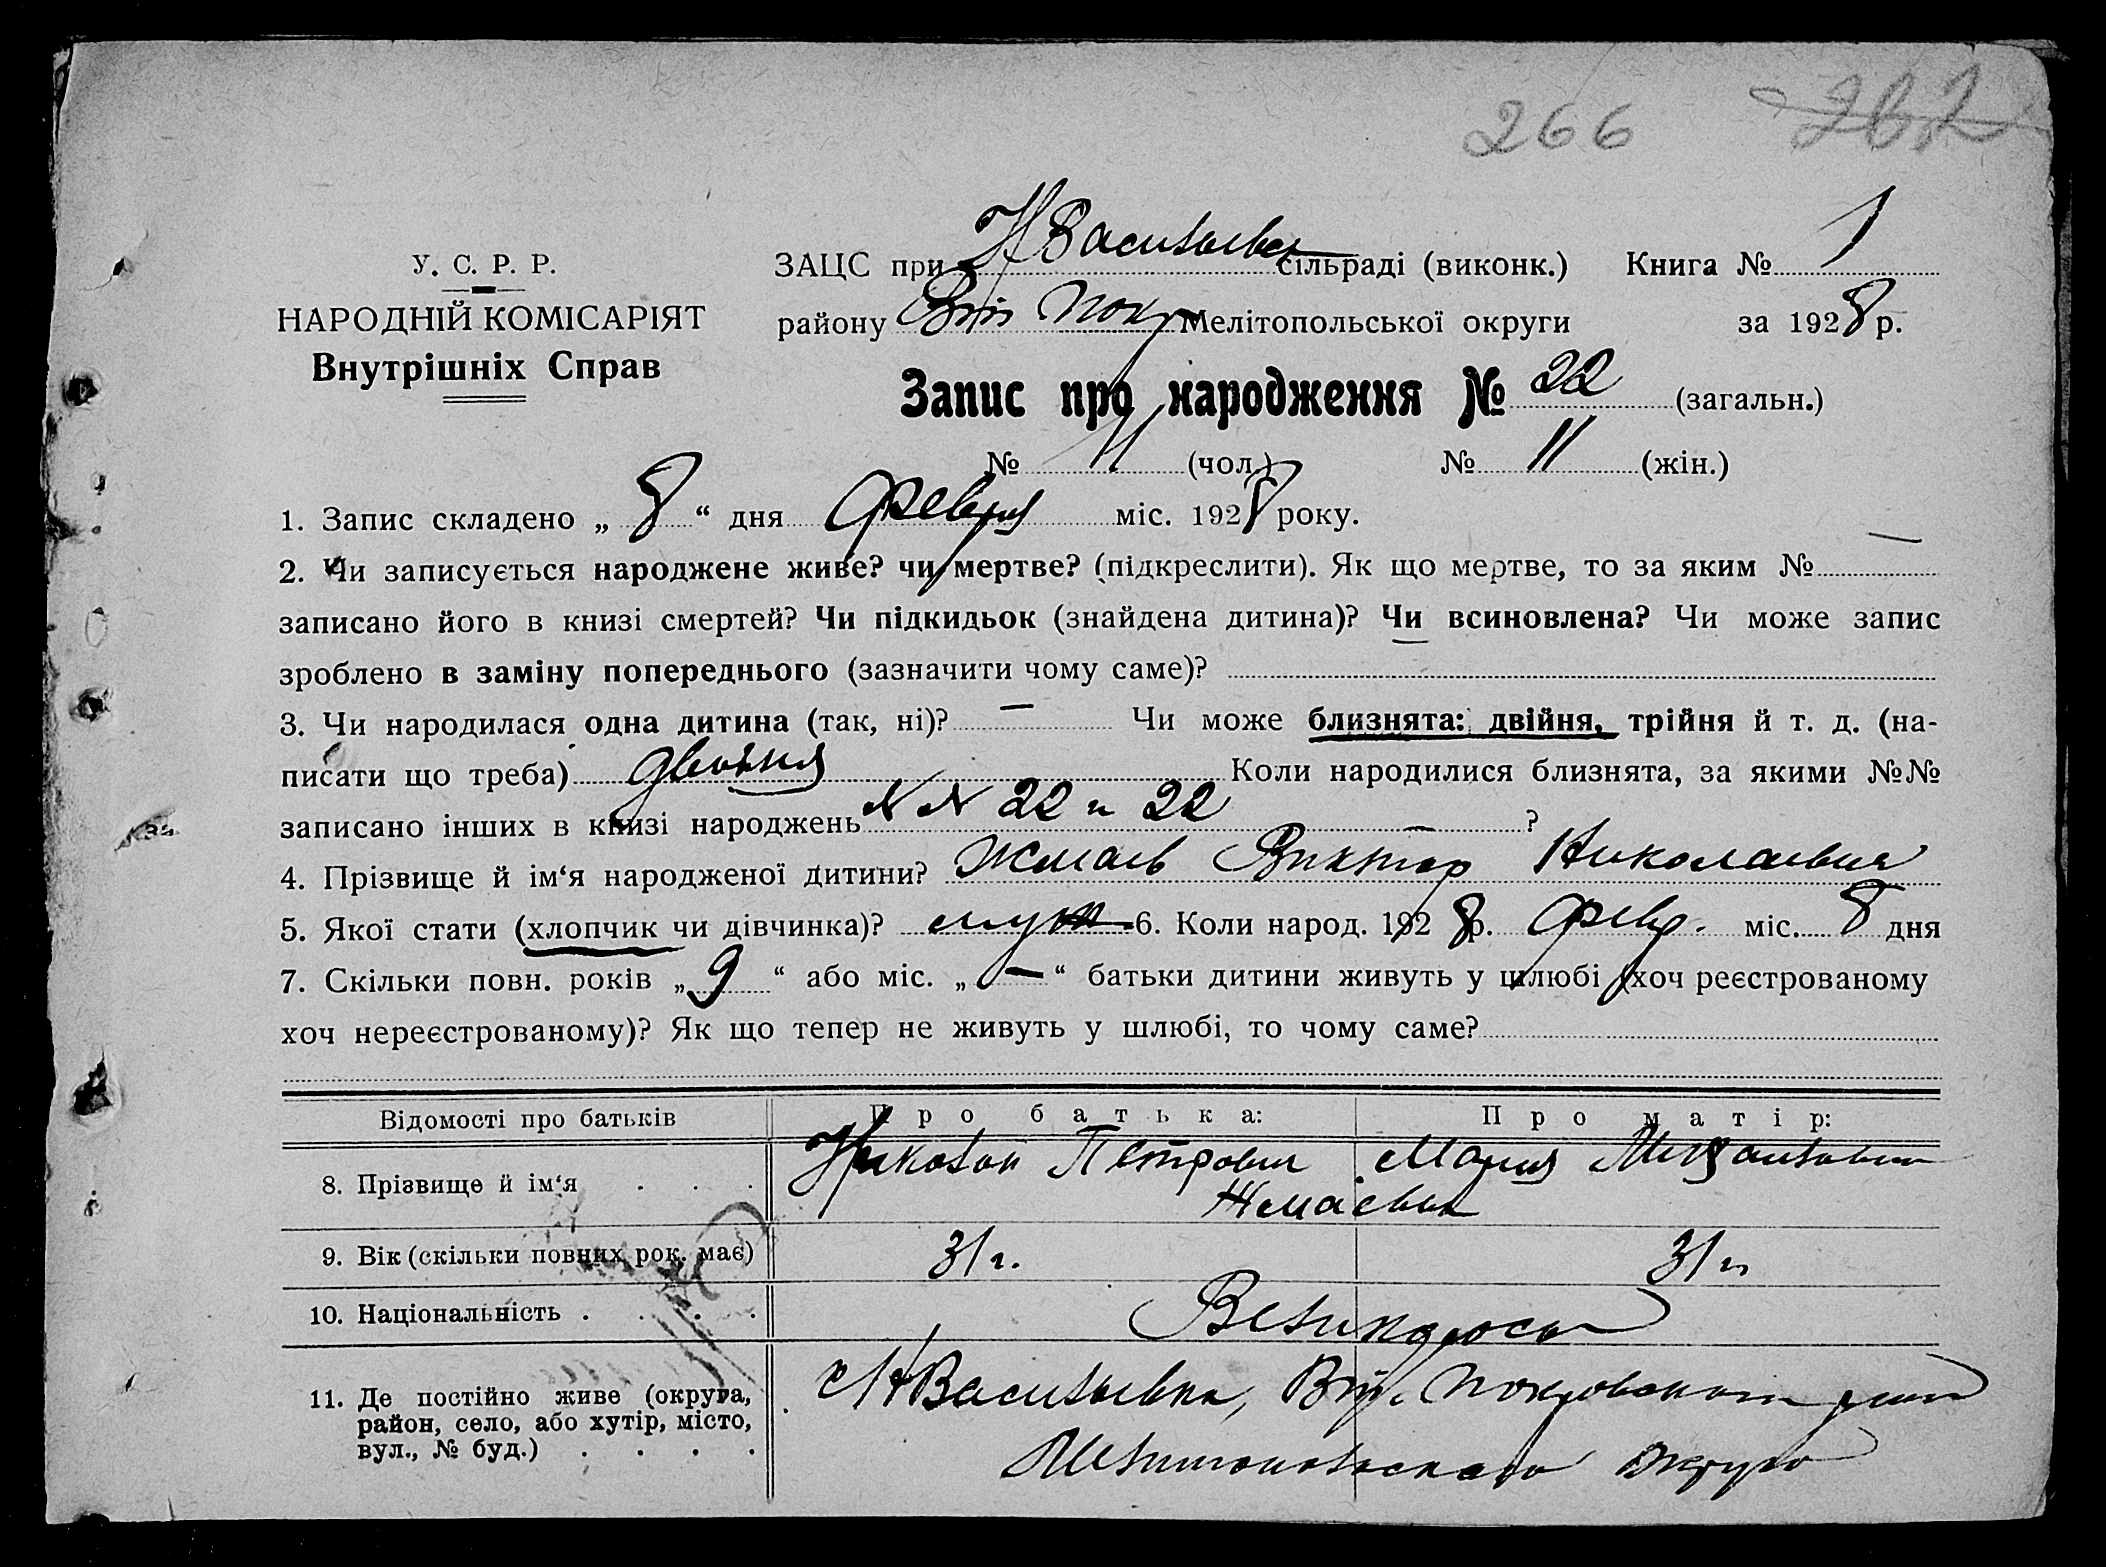 266 262
У. С. Р. Р.
НАРОДНІЙ КОМІСАРІЯТ
Внутрішніх Справ
ЗАЦС при Н Васильевск сільраді (виконк.) Книга № 1
району Вт Покр Мелітопольської округи за 1928 р.
Запис про народження № 22 (загальн.)
№ 11 (чол.) № 11 (жін.)
1. Запис складено „ 8 “ дня февра міс. 1928 року.
2. Чи записується народжене живе? чи мертве? (підкреслити). Як що мертве, то за яким № —
записано його в книзі смертей? Чи підкидьок (знайдена дитина)? Чи всиновлена? Чи може запис
зроблено в заміну попереднього (зазначити чому саме)? —
3. Чи народилася одна дитина (так, ні)? — Чи може близнята: двійня, трійня й т. д. (на-
писати що треба) двойня Коли народилися близнята, за якими №№
записано інших в книзі народжень N N 22 и 22 — ?
4. Прізвище й ім‘я народженої дитини? Жмаев Виктор Николаевич
5. Якої стати (хлопчик чи дівчинка)? муж 6. Коли народ. 1928 р. февр. міс. 8 дня
7. Скільки повн. років „ 9 “ або міс. „ — “ батьки дитини живуть у шлюбі (хоч реєстрованому
хоч нереєстрованому)? Як що тепер не живуть у шлюбі, то чому саме?
Відомості про батьків Про батька: Про матір:
8. Прізвище й ім‘я . . . Николай Петрович Мария Михайловна
Жмаевы
9. Вік (скільки повних рок. має) 31 г. 31 г.
10. Національність . . . . Великоросы
11. Де постійно живе (округа, район, село, або хутір, місто, вул., № буд.) . . . . с Н Васильевка, Вт. Покровского район
Мелитопольского округа